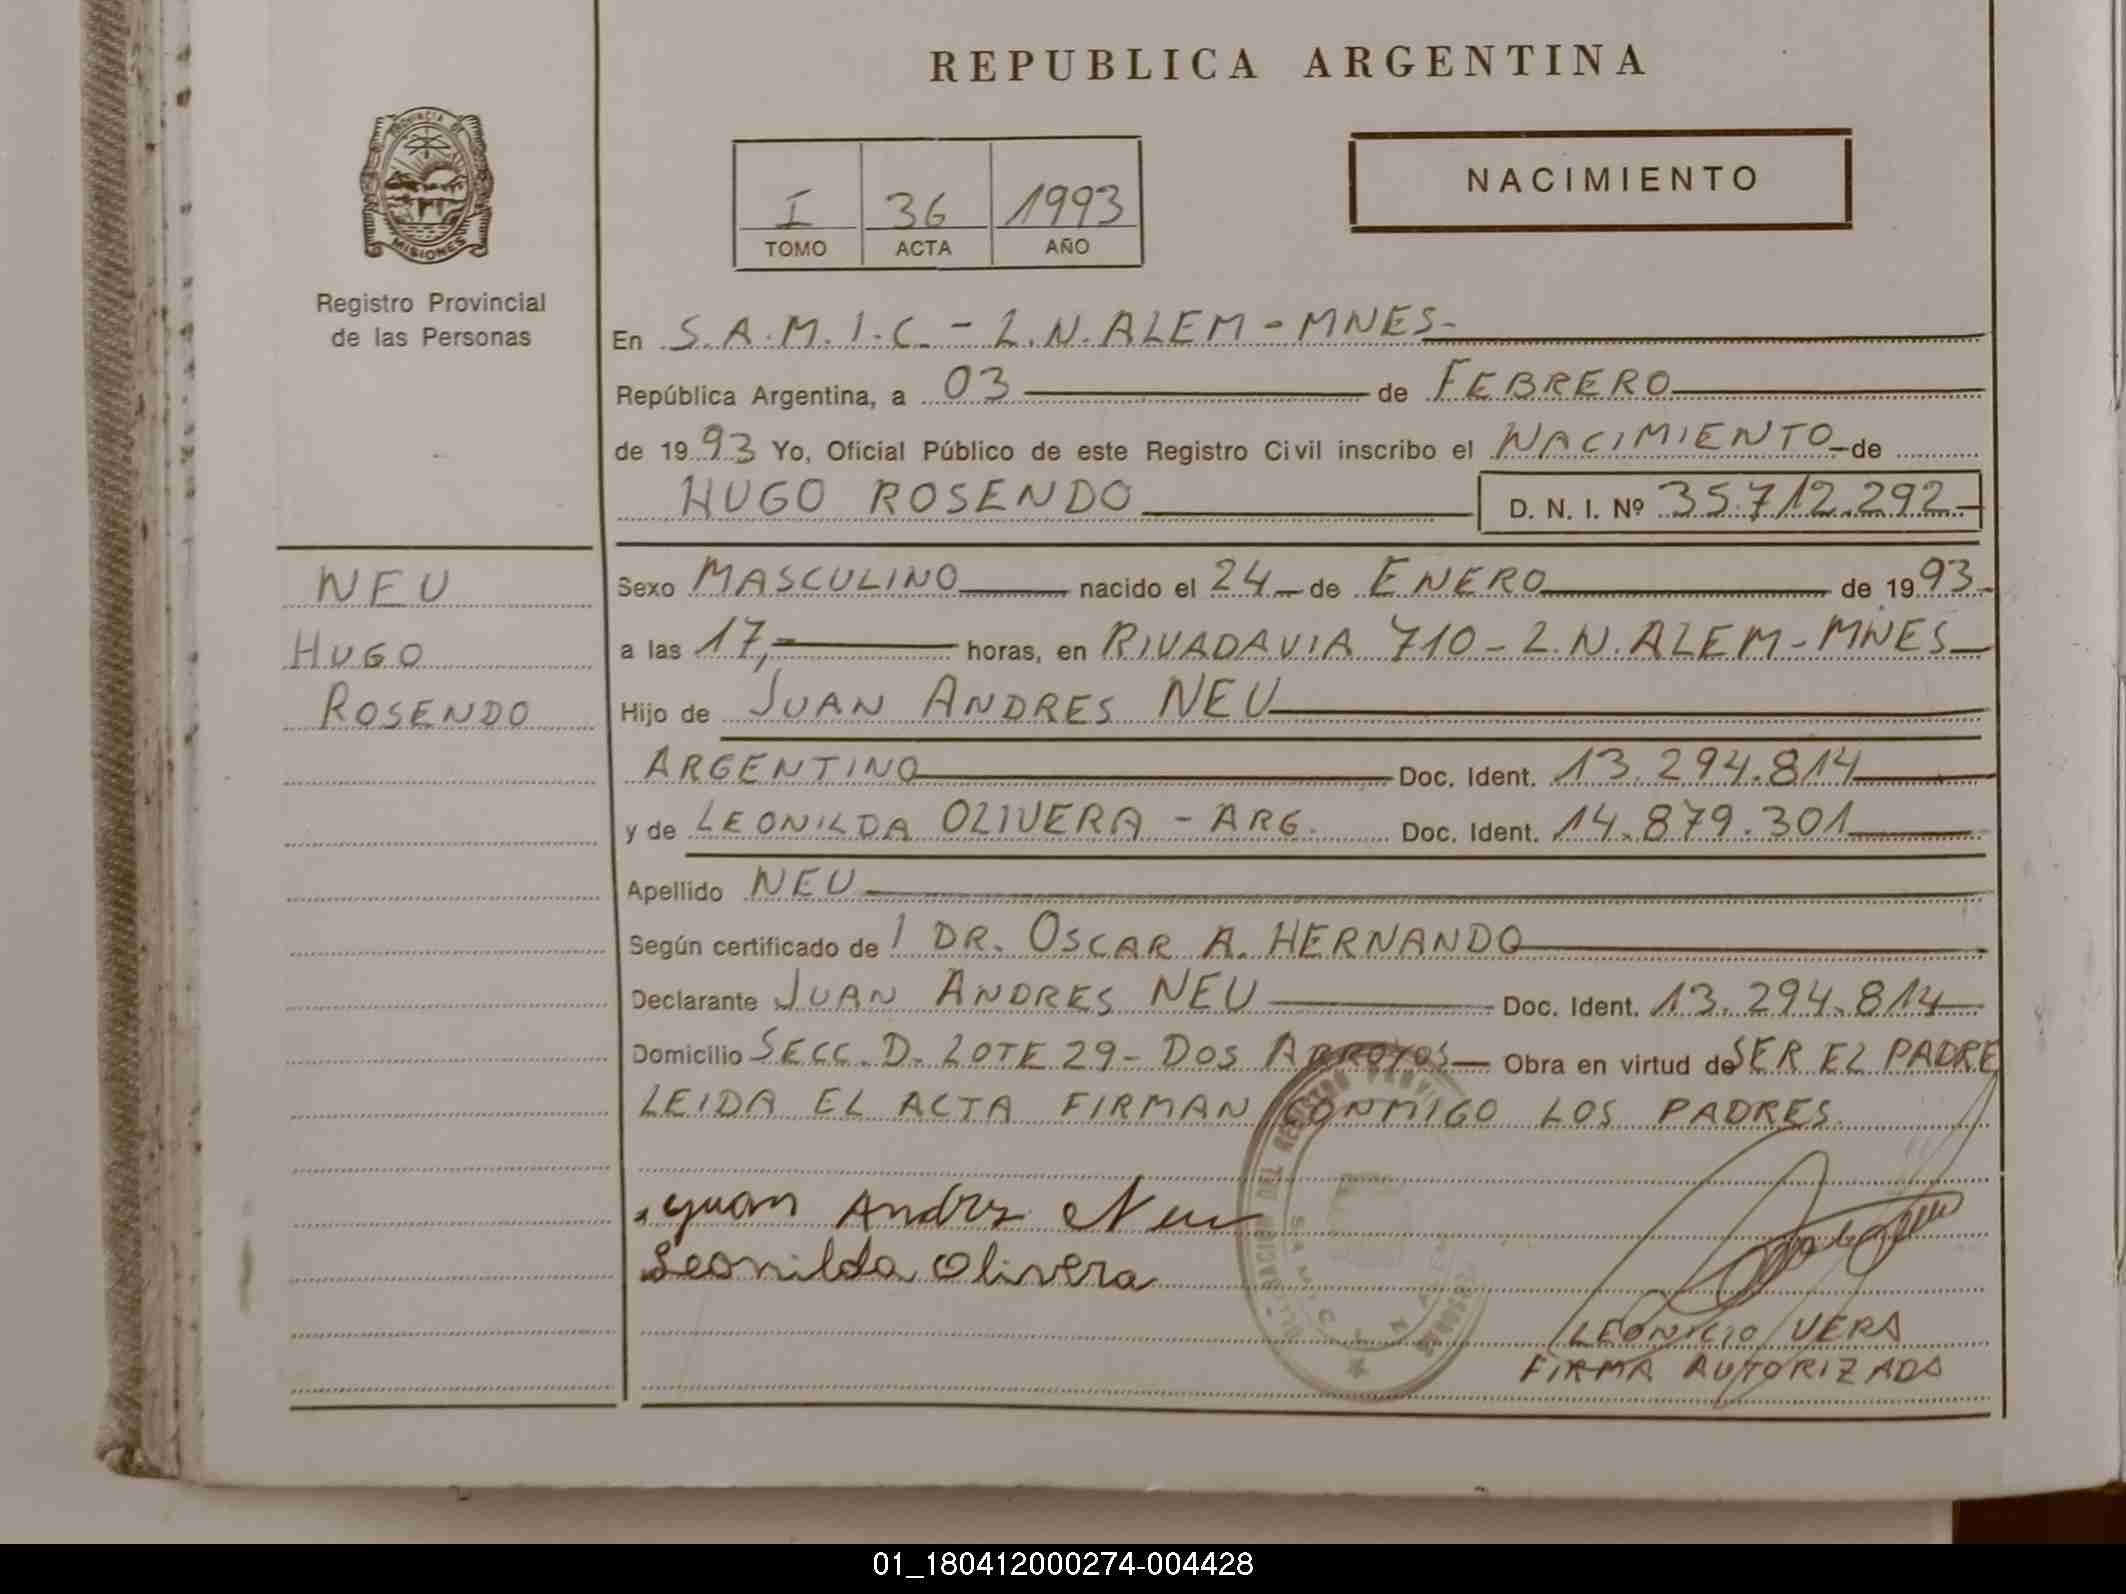 REPUBLICA ARGENTINA
PROVINCIA DE
MISIONES
Registro Provincial
de las Personas
I 36 1993
TOMO ACTA AÑO
NACIMIENTO
En S.A.M.I.C. - L.N. ALEM - MNES-
República Argentina, a 03 de FEBRERO
de 1993 Yo, Oficial Público de este Registro Civil inscribo el NACIMIENTO de
HUGO ROSENDO D. N. I. Nº 35.712.292-
NEU
HUGO
ROSENDO
Sexo MASCULINO nacido el 24 de ENERO de 1993-
a las 17,- horas, en RIVADAVIA 710 - L.N. ALEM - MNES
Hijo de JUAN ANDRES NEU
ARGENTINO Doc. Ident. 13.294.814
y de LEONILDA OLIVERA - ARG. Doc. Ident. 14.879.301
Apellido NEU
Según certificado de l DR. OSCAR A. HERNANDO
Declarante JUAN ANDRES NEU Doc. Ident. 13.294.814
Domicilio SECC. D- LOTE 29- DOS ARROYOS Obra en virtud de SER EL PADRE
LEIDA EL ACTA FIRMAN CONMIGO LOS PADRES.
Juan Andrs Neu
Leonilda Olivera
LEONICIO VERA
FIRMA AUTORIZADA
01_180412000274-004428